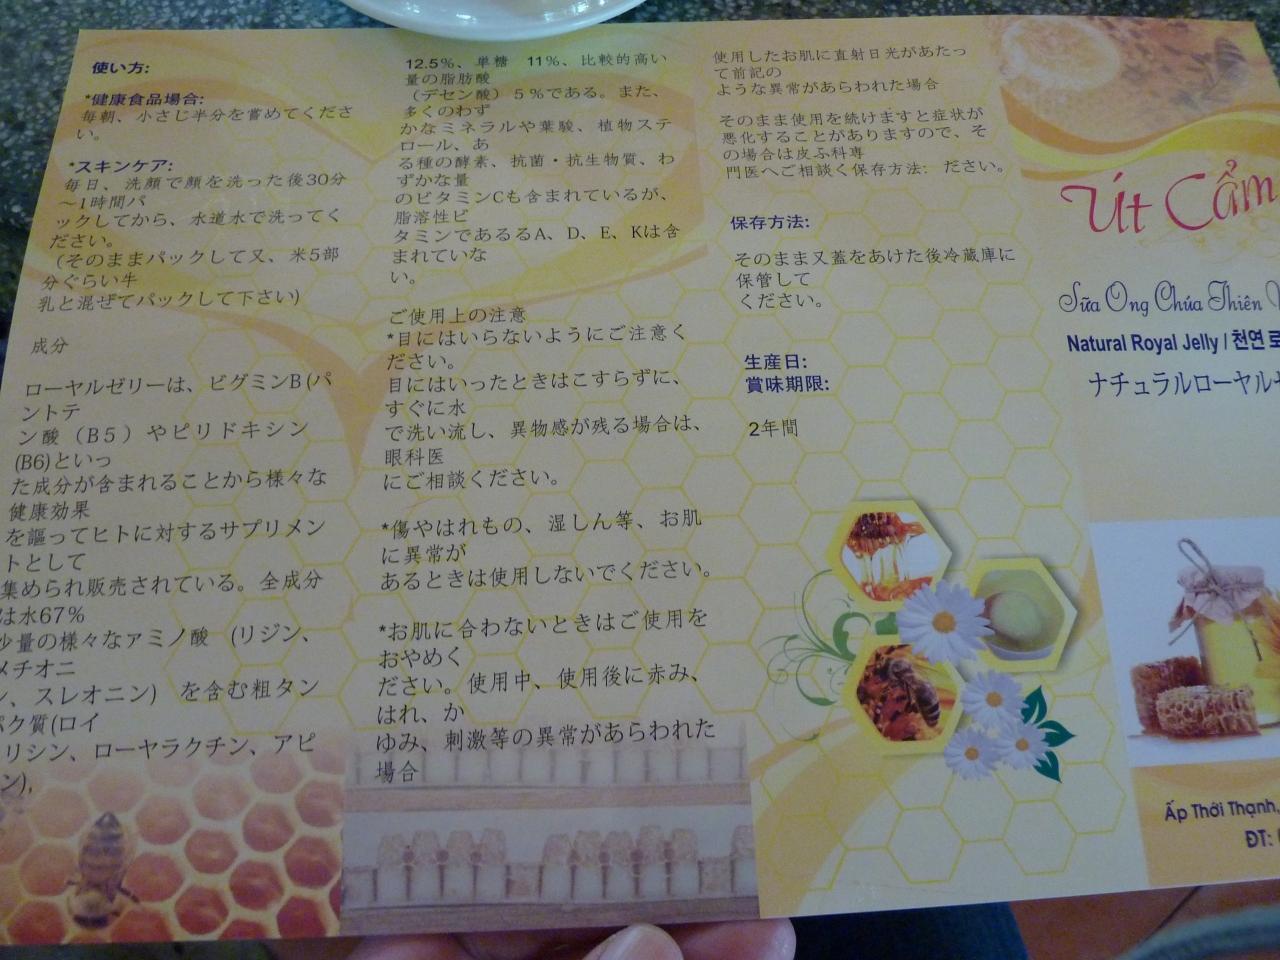 使い方:
*健康食品場合:
毎朝、小さじ半分を嘗めてくださ
い。
*スキンケア:
毎日、洗顔で顔を洗った後30分
～1時間パ
ックしてから、水道水で洗ってく
ださい。
（そのままパックして又、米5部
分ぐらい牛
乳と混ぜてパックして下さい)
成分
ローヤルゼリーは、ビグミンB (パ
ントテ
ン酸（B5）やピリドキシン
(B6)といっ
た成分が含まれることから様々な
健康効果
を謳ってヒトに対するサプリメン
トとして
集められ販売されている。全成分
は水67%
少量の様々なアミノ酸 (リジン、
メチオニ
ン、スレオニン) を含む粗タン
パク質(ロイ
リシン、ローヤラクチン、アピ
ン),
12.5%、単糖 11%、比較的高い
量の脂肪酸
（デセン酸）5%である。また、
多くのわず
かなミネラルや葉酸、植物ステ
ロール、あ
る種の酵素、抗菌・抗生物質、わ
ずかな量
のビタミンCも含まれているが、
脂溶性ビ
タミンであるるA、D、E、Kは含
まれていな
い。
ご使用上の注意
*目にはいらないようにご注意く
ださい。
目にはいったときはこすらずに、
すぐに水
で洗い流し、異物感が残る場合は、
眼科医
にご相談ください。
*傷やはれもの、湿しん等、お肌
に異常が
あるときは使用しないでください。
*お肌に合わないときはご使用を
おやめく
ださい。使用中、使用後に赤み、
はれ、か
ゆみ、刺激等の異常があらわれた
場合
使用したお肌に直射日光があたっ
て前記の
ような異常があらわれた場合
そのまま使用を続けますと症状が
悪化することがありますので、そ
の場合は皮ふ科専
門医へご相談く保存方法: ださい。
保存方法:
そのまま又蓋をあけた後冷蔵庫に
保管して
ください。
生産日:
賞味期限:
2年間
Út Cẩm
Sữa Ong Chúa Thiên
Natural Royal Jelly / 천연
ナチュラルローヤル
Ấp Thới Thạnh,
ĐT: